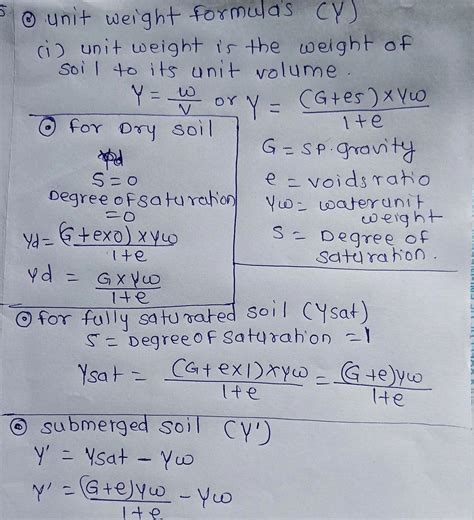 ⊙ unit weight formula's (γ)
(i) unit weight is the weight of
soil to its unit volume.
γ = w/v or γ = (G+es)×γω / 1+e
⊙ for Dry soil
γd
S=0
Degree of saturation
=0
γd = (G+e×0)×γω / 1+e
γd = G×γω / 1+e
G = sp.gravity
e = voids ratio
γω = water unit
weight
S = Degree of
saturation.
⊙ for fully saturated soil (γsat)
S = Degree of saturation = 1
γsat = (G+e×1)×γω / 1+e = (G+e)γω / 1+e
⊙ submerged soil (γ')
γ' = γsat - γω
γ' = (G+e)γω / 1+e - γω